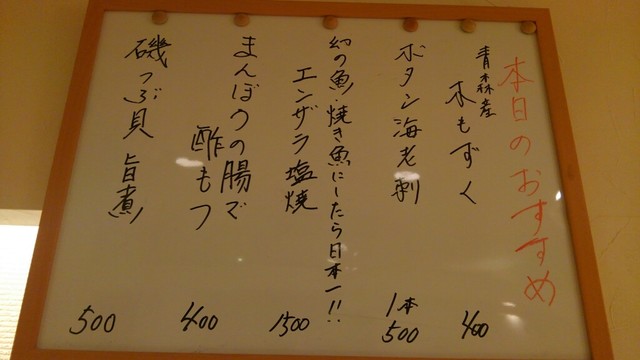 本日のおすすめ
青森産
水もずく
400
ボタン海老刺
1本
500
幻の魚・焼き魚にしたら日本一!!
エンザラ塩焼
1500
まんぼうの腸で
酢もつ
400
磯つぶ貝 旨煮
500